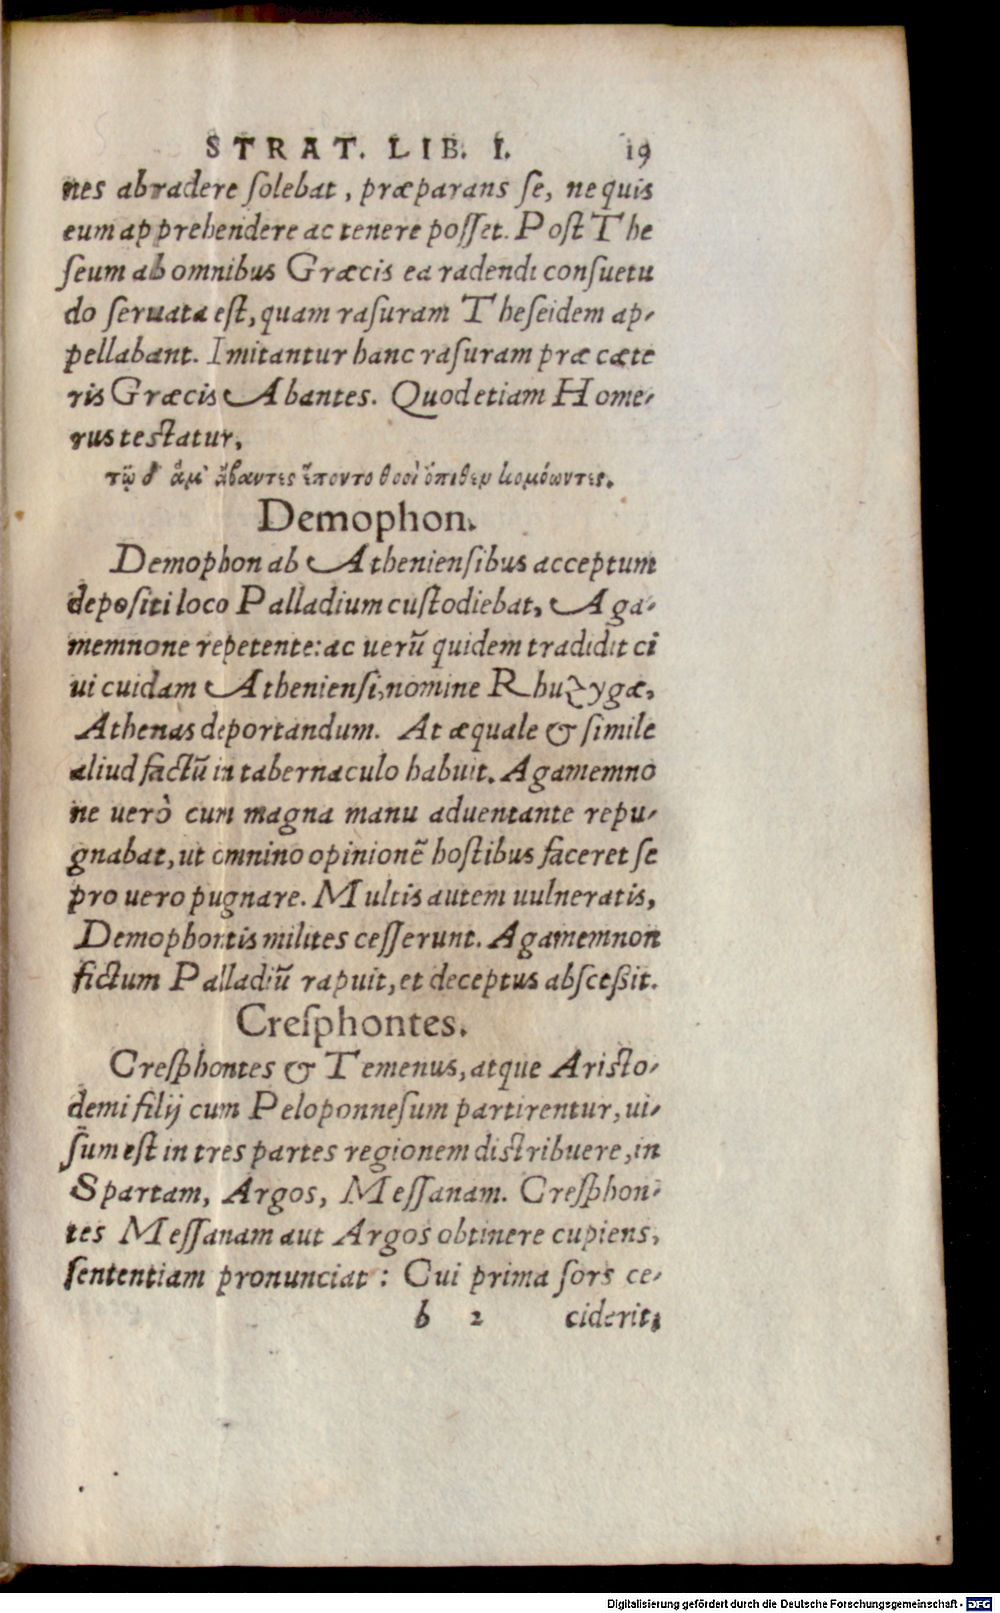 STRAT. LIB. I. 19
nes abradere ſolebat, præparans ſe, ne quis
eum apprehendere ac tenere poſſet. Poſt The
ſeum ab omnibus Græcis ea radendi conſuetu
do ſeruata eſt, quam raſuram Theſeidem ap-
pellabant. Imitantur hanc raſuram præ cæte
ris Græcis Abantes. Quod etiam Home-
rus teſtatur,
τῷ δ' ἅμ' ἄβαντες ἕποντο θοοὶ ὄπιθεν κομόωντες.
Demophon.
Demophon ab Athenienſibus acceptum
depoſiti loco Palladium cuſtodiebat, Aga-
memnone repetente: ac uerū quidem tradidit ci
ui cuidam Athenienſi, nomine Rhuzygæ,
Athenas deportandum. At æquale & ſimile
aliud factū in tabernaculo habuit. Agamemno
ne uerò cum magna manu aduentante repu-
gnabat, ut omnino opinionē hoſtibus faceret ſe
pro uero pugnare. Multis autem uulneratis,
Demophontis milites ceſſerunt. Agamemnon
fictum Palladiū rapuit, et deceptus abſceßit.
Creſphontes.
Creſphontes & Temenus, atque Ariſto-
demi filij cum Peloponneſum partirentur, ui-
ſum eſt in tres partes regionem diſtribuere, in
Spartam, Argos, Meſſanam. Creſphon-
tes Meſſanam aut Argos obtinere cupiens,
ſententiam pronunciat: Cui prima ſors ce-
b 2 ciderit,
Digitalisierung gefördert durch die Deutsche Forschungsgemeinschaft - DFG